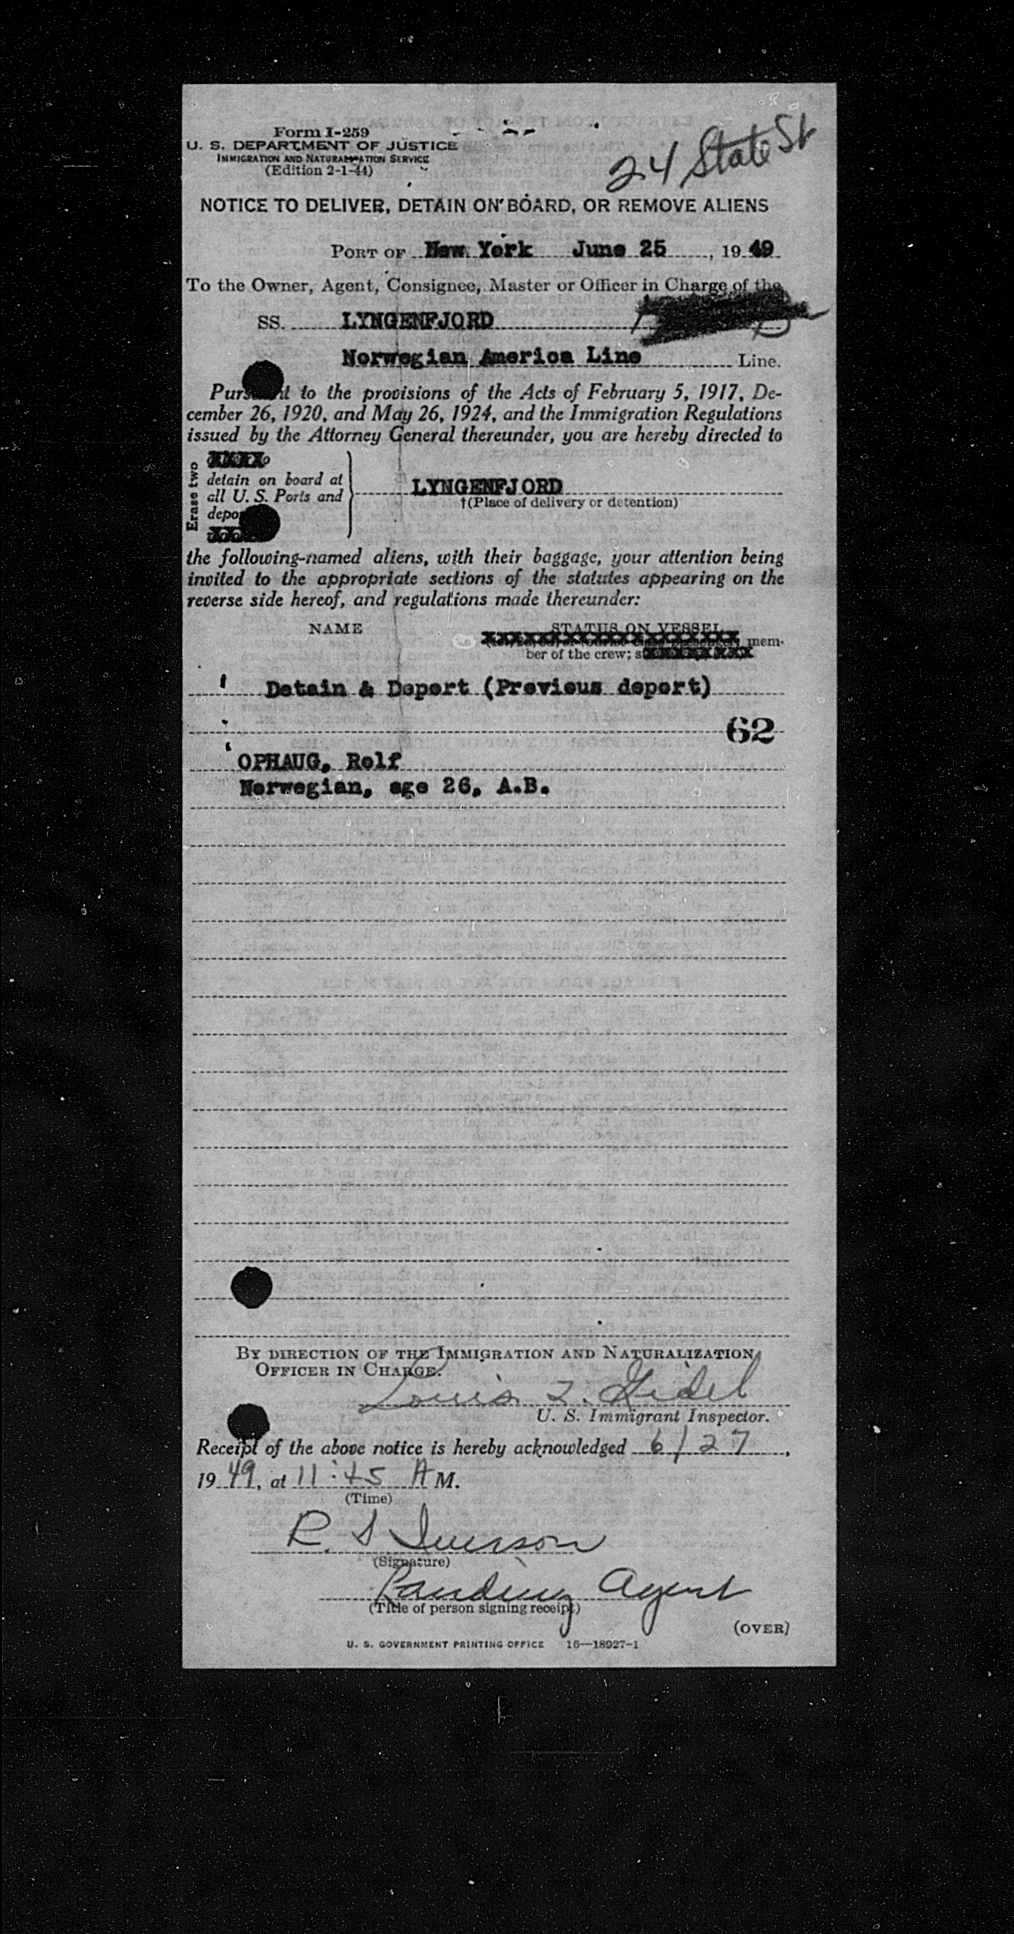 Form I-259
U. S. DEPARTMENT OF JUSTICE
IMMIGRATION AND NATURALIZATION SERVICE
(Edition 2-1-44)
24 State St
NOTICE TO DELIVER, DETAIN ON BOARD, OR REMOVE ALIENS
PORT OF New York June 25, 1949
To the Owner, Agent, Consignee, Master or Officer in Charge of the
SS. LYNGENFJORD
Norwegian America Line Line.
Pursuant to the provisions of the Acts of February 5, 1917, De-
cember 26, 1920, and May 26, 1924, and the Immigration Regulations
issued by the Attorney General thereunder, you are hereby directed to
Erase two
detain on board at
all U. S. Ports and
depo
LYNGENFJORD
†(Place of delivery or detention)
the following-named aliens, with their baggage, your attention being
invited to the appropriate sections of the statutes appearing on the
reverse side hereof, and regulations made thereunder:
NAME STATUS ON VESSEL
mem-
ber of the crew;
Detain & Deport (Previous deport)
62
OPHAUG, Rolf
Norwegian, age 26, A.B.
BY DIRECTION OF THE IMMIGRATION AND NATURALIZATION
OFFICER IN CHARGE.
Louis
U. S. Immigrant Inspector.
Receipt of the above notice is hereby acknowledged 6/27,
1949, at 11:45 A M.
(Time)
R. S Iverson
(Signature)
Landing Agent
(Title of person signing receipt)
(OVER)
U. S. GOVERNMENT PRINTING OFFICE 16—18927-1